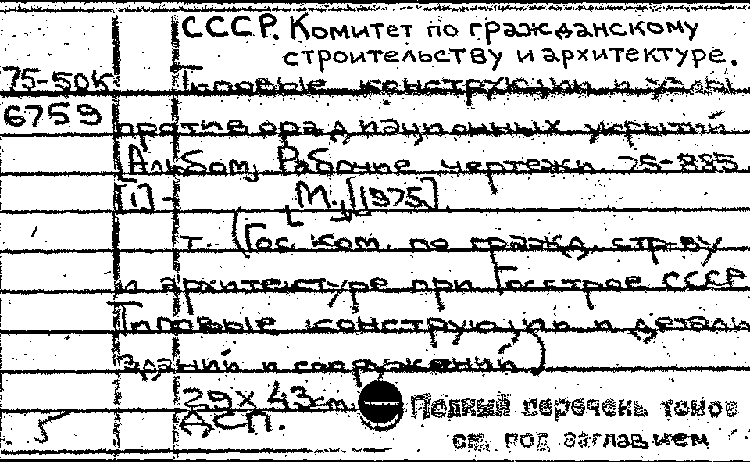 СССР. Комитет по гражданскому
строительству и архитектуре.
75-50к Типовые конструкции и узлы
6759 противорадиационных укрытий
[Альбом]. Рабочие чертежи 75-885
[1] - М., [1975].
т. (Гос. ком. по гражд. стр-ву
и архитектуре при Госстрое СССР
Типовые конструкции и детали
зданий и сооружений)
29 х 43 см.
ДСП.
5
Полный перечень томов
см. под заглавием